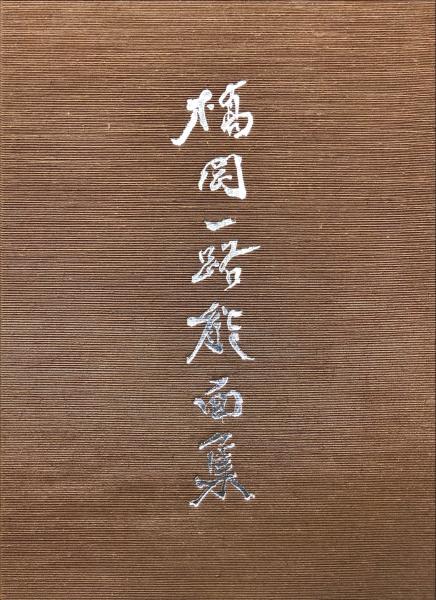 橋岡一路能面集